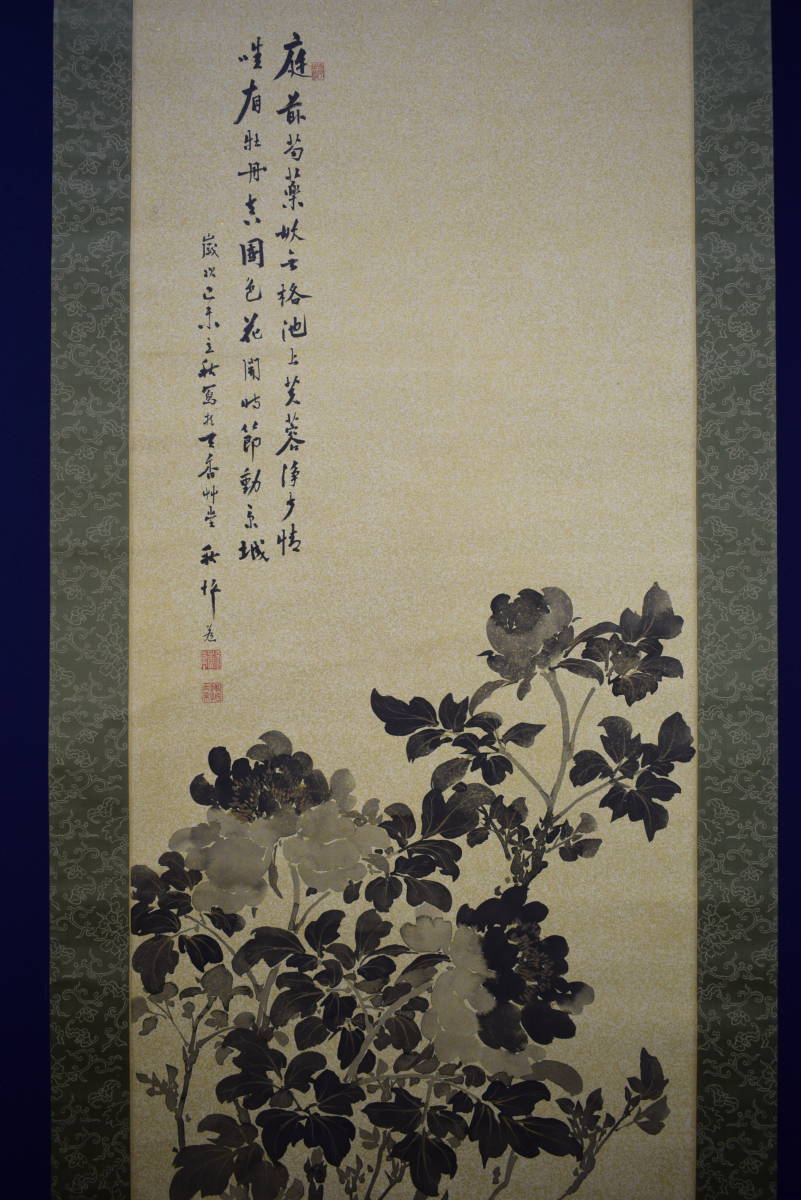 庭前芍薬妖無格池上芙蓉浄少情
唯有牡丹真國色花開時節動京城
歳次己未立秋寫於天香艸堂 秋